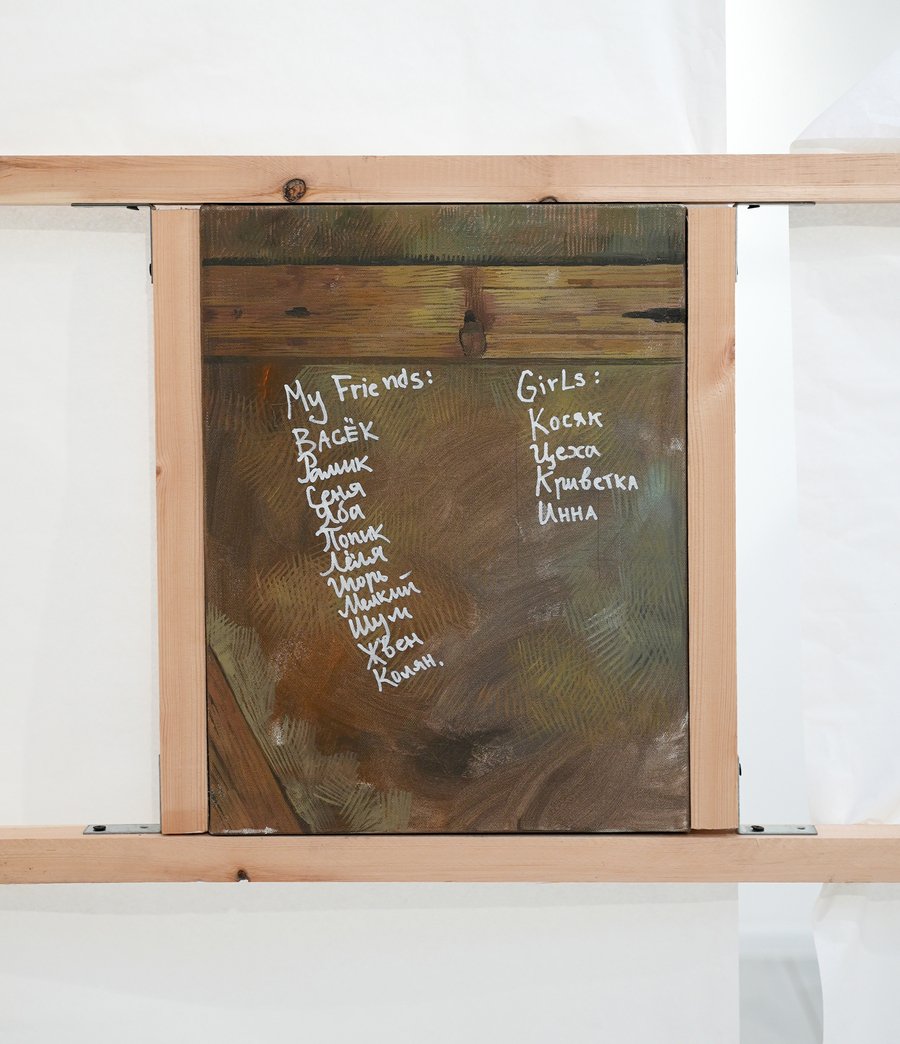 My Friends:
ВАСЁК
Рамик
Сеня
Яба
Попик
Лёля
Игорь
Мелкий
Шум
Жвен
Колян.
GirLs:
Косяк
Цеха
Криветка
Инна